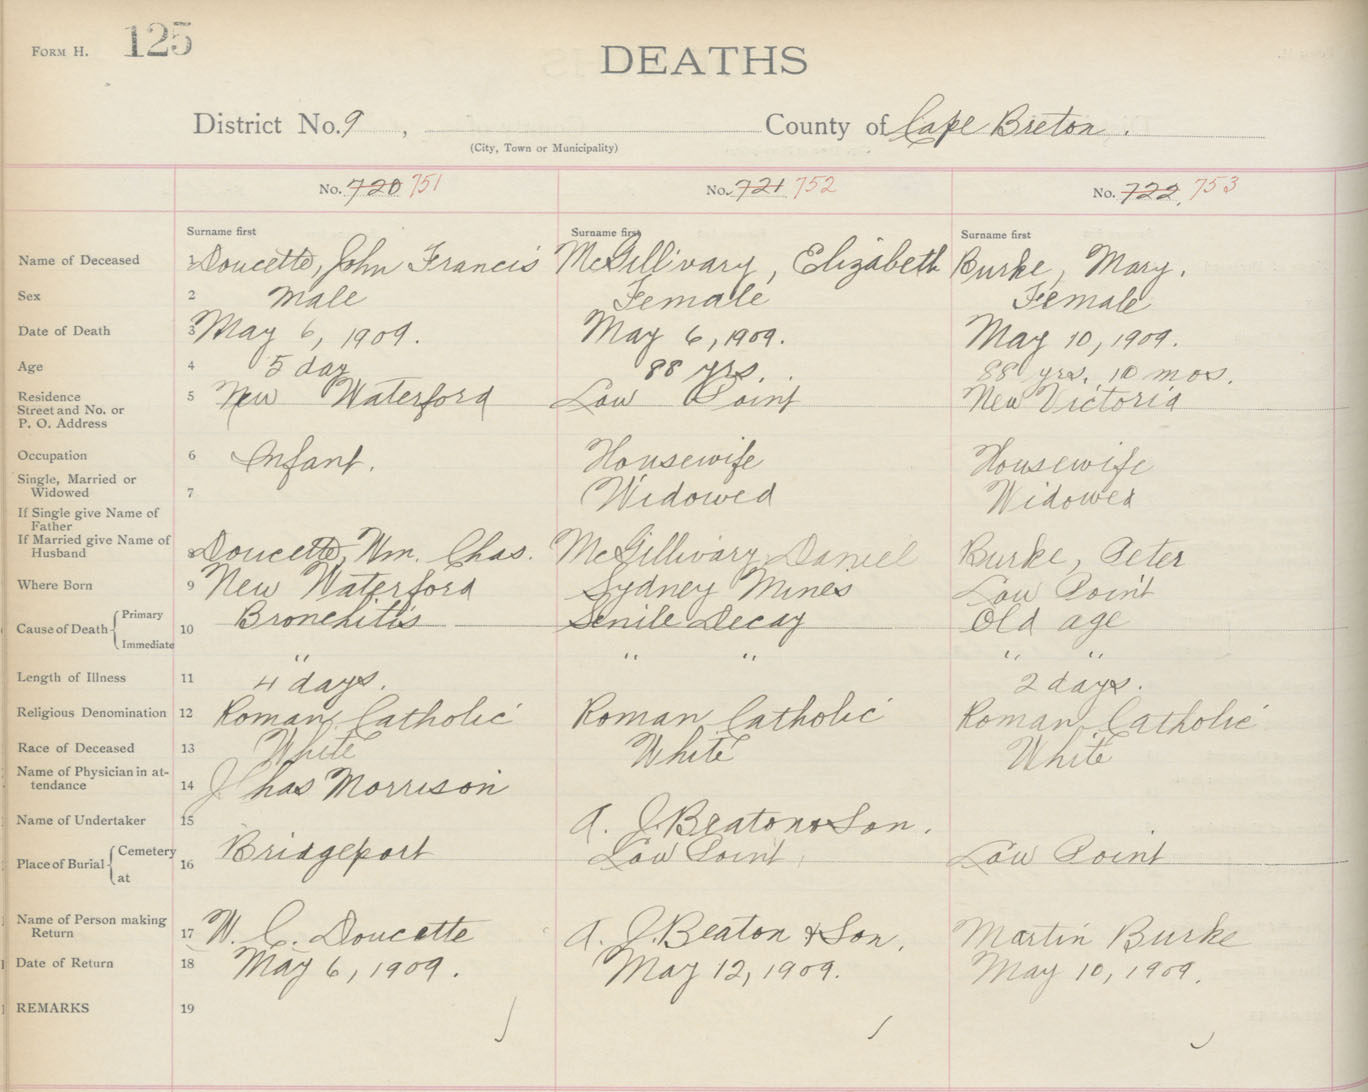 FORM H. 125
DEATHS
District No. 9 , County of Cape Breton .
(City, Town or Municipality)
No. 720 751 No. 721 752 No. 722. 753
Surname first Surname first Surname first
Name of Deceased 1 Doucette, John Francis McGillivary, Elizabeth Burke, Mary.
Sex 2 Male Female Female
Date of Death 3 May 6, 1909. May 6, 1909. May 10, 1909.
Age 4 5 day 88 yrs. 88 yrs. 10 mos.
Residence 5 New Waterford Low Point New Victoria
Street and No. or
P. O. Address
Occupation 6 Infant. Housewife Housewife
Single, Married or
Widowed 7 Widowed Widowed
If Single give Name of
Father
If Married give Name of
Husband 8 Doucette, Wm. Chas. McGillivary, Daniel Burke, Peter
Where Born 9 New Waterford Sydney Mines Low Point
Cause of Death { Primary 10 Bronchitis Senile Decay Old age
Immediate " " " " "
Length of Illness 11 4 days. 2 days.
Religious Denomination 12 Roman Catholic Roman Catholic Roman Catholic
Race of Deceased 13 White White White
Name of Physician in at-
tendance 14 J Chas Morrison
Name of Undertaker 15 A. J. Beaton & Son.
Place of Burial { Cemetery 16 Bridgeport Low Point, Low Point
at
Name of Person making
Return 17 W. C. Doucette A. J. Beaton & Son. Martin Burke
Date of Return 18 May 6, 1909. May 12, 1909. May 10, 1909.
REMARKS 19